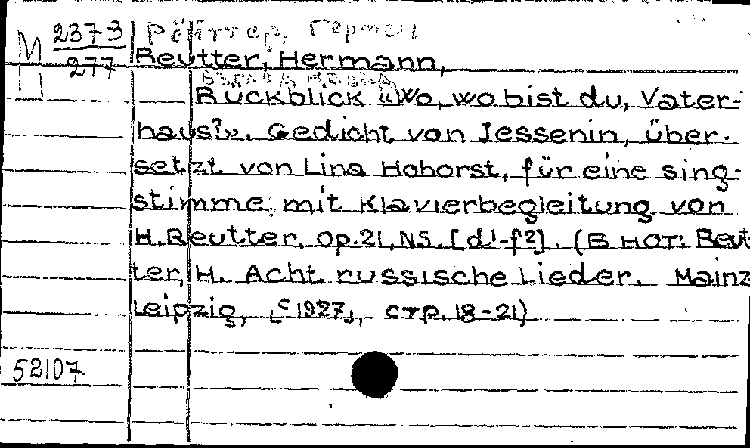 М 2373 Рёйттер, Герман
П 277 Reutter, Hermann,
Rückblick «Wo, wo bist du, Vater-
haus?». Gedicht von Jessenin, über-
setzt von Lina Hohorst, für eine sing-
stimme, mit Klavierbegleitung von
H. Reutter. Op.21, N5. [d¹-f²]. (В нот: Reut
ter, H. Acht russische Lieder. Mainz
Leipzig, [c 1927], стр. 18-21)
52107